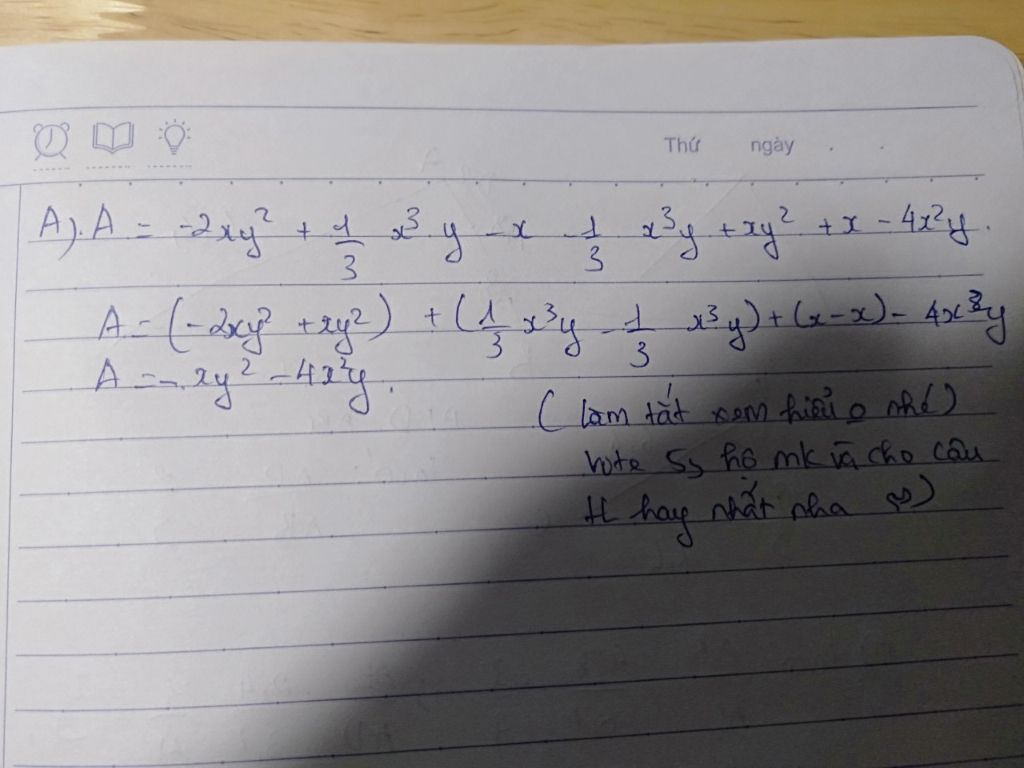 Thứ ngày . .
A). A = -2xy² + 1/3 x³y - x - 1/3 x³y + xy² + x - 4x²y.
A = (-2xy² + xy²) + (1/3 x³y - 1/3 x³y) + (x - x) - 4x²y
A = - xy² - 4x²y.
( làm tắt xem hiểu o nhé)
vote 5s hộ mk và cho câu
tl hay nhất nha )